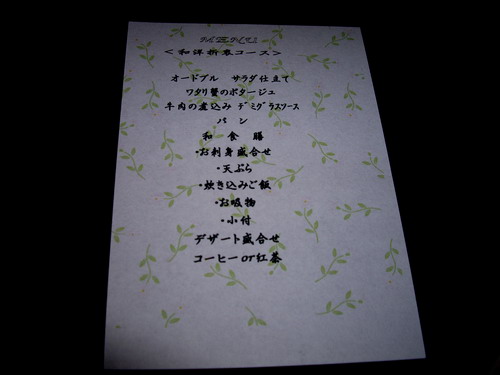 MENU
<和洋折衷コース>
オードブル サラダ仕立て
ワタリ蟹のポタージュ
牛肉の煮込み デミグラスソース
パン
和食膳
・お刺身盛合せ
・天ぷら
・炊き込みご飯
・お吸物
・小付
デザート盛合せ
コーヒーor紅茶